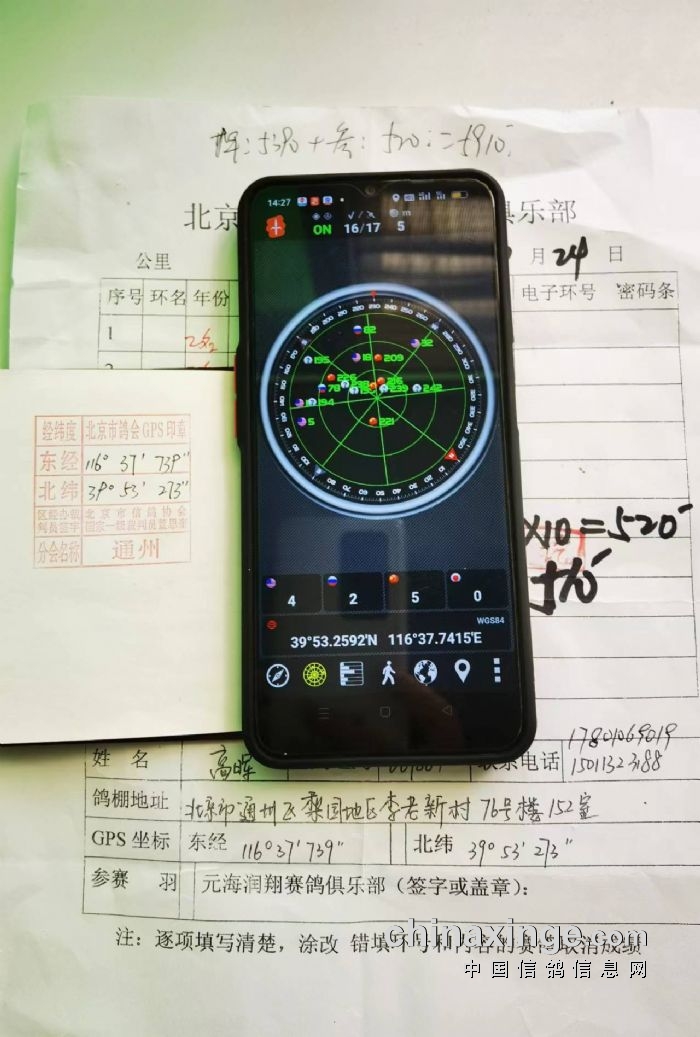 14:27
ON 16/17 5
m
北京
俱乐部
公里
月24日
序号 环名 年份
电子环号 密码条
1
82
32
195
18 209
226
78
216
239
242
194
5
221
经纬度 北京市鸽会GPS印章
东经 116° 37′ 739″
北纬 39° 53′ 273″
区经办裁判员签字 北京市信鸽协会
分会名称 通州
×10=520
4 2 5 0
WGS84
39°53.2592'N 116°37.7415'E
姓名 高晖
联系电话 17801069019
15011323188
鸽棚地址 北京市通州区梨园地区李老新村76号楼152室
GPS坐标 东经 116°37′739″ 北纬 39°53′273″
参赛 羽 元海润翔赛鸽俱乐部（签字或盖章）：
注：逐项填写清楚，涂改 错填环号和内容的赛鸽取消成绩
chinaxinge.com
中国信鸽信息网